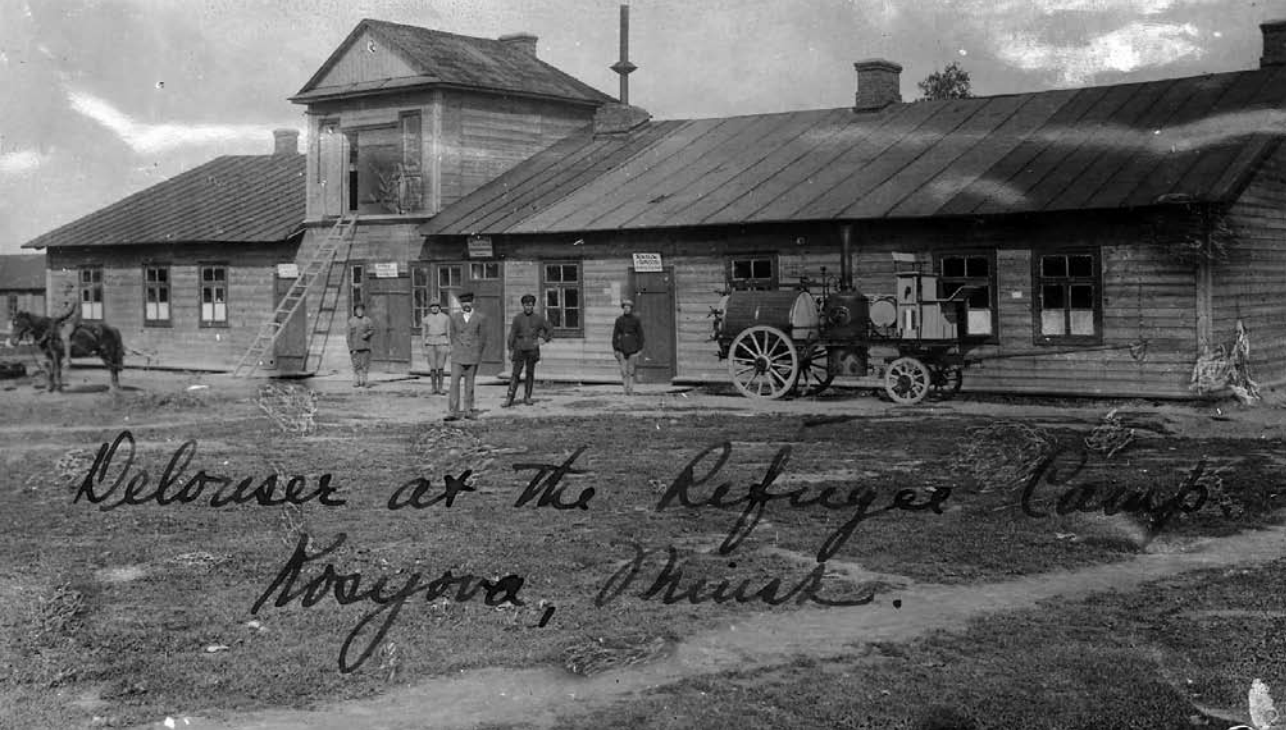 Delouser at the Refugee Camp.
Kosyova, Minsk.